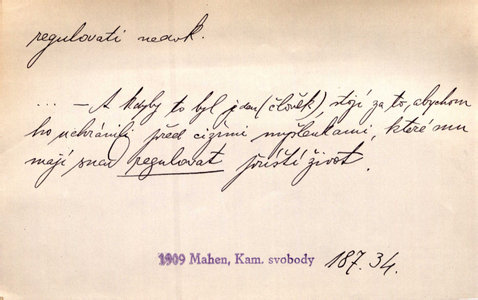 regulovati nedok.
... – A kdyby to byl jeden (člověk), stojí za to, abychom
ho uchránili před cizími myšlénkami, které mu
mají snad regulovat příští život.
1909 Mahen, Kam. svobody 187.34.